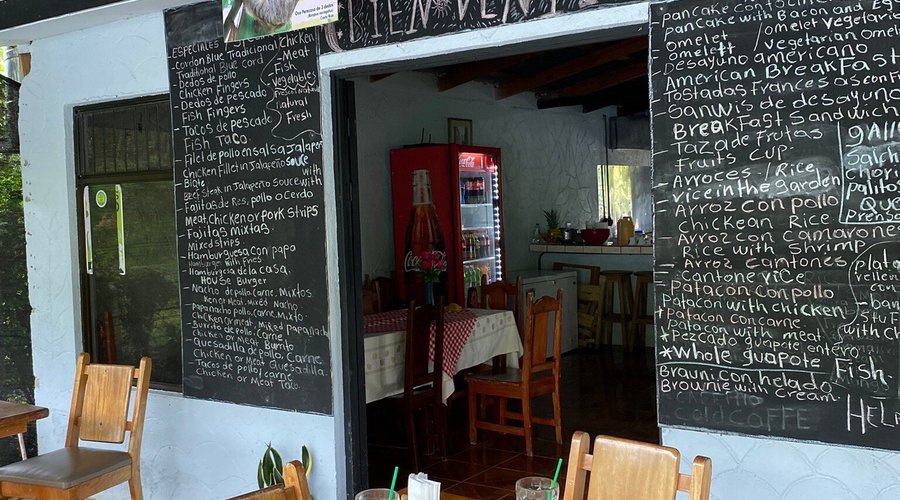 Oso Perezoso de 3 dedos
BIENVENI
ESPECIALES
Cordon Blue Tradicional Chicken
Traditional Blue Cord
Dedos de pollo
Chicken Fingers
Dedos de pescado
Fish Fingers
- Tacos de pescado
Fish Taco
- Meat
- Fish
- Vegetables
natural
Fresh
Filet de pollo en salsa Jalaper
Chicken Fillet in Jalapeño sauce
Beef steak in Jalapeño Souce with
- Fajitas de Res, pollo o Cerdo
Meat, Chicken or pork strips
- Fajitas mixtas.
Mixed strips
- Hamburguesa con papa
Hamburgers with Fries
- Hamburgesa de la casa.
House Burger
- Nacho de pollo, carne, Mixtos.
papanacho pollo, carne, Mixto
Chicken or meat, Mixed papanacho
- Burrito de pollo, Carne
Chicken or Meat Burrito
Quesadilla de pollo, Carne
Chicken or Meat Quesadilla.
Tacos de pollo, carne
Chicken or Meat Taco
Coca-Cola
Coca-Cola
pancake con tocine
pancake with Bacon and Eg
- Omelet / omelet vegetaria
Omelett / vegetarian omele
- Desayuno americano
American BreakFast
- Tostadas Francesas con Fr
- Sanwis de desayuno
BreakFast Sandwich
- Taza de Frutas
Fruits Cup.
- Arroces / Rice
rice in the garden
- Arroz con pollo
Chickean Rice
- Arroz con camarones
Rice with Shrimp
- Arroz cantones
Cantone rice
- Patacon con pollo
Patacon with chicken
- Patacon con carne
Patacon with meat
* Pezcado guapote entero
* Whole guapote Fish.
Brauni con helado
Brownie with cream.
Cold COFFE
GALL
Salch
chori
palito
Que
prense
plat
relleno
- ban
stuF
(with ch
HELA